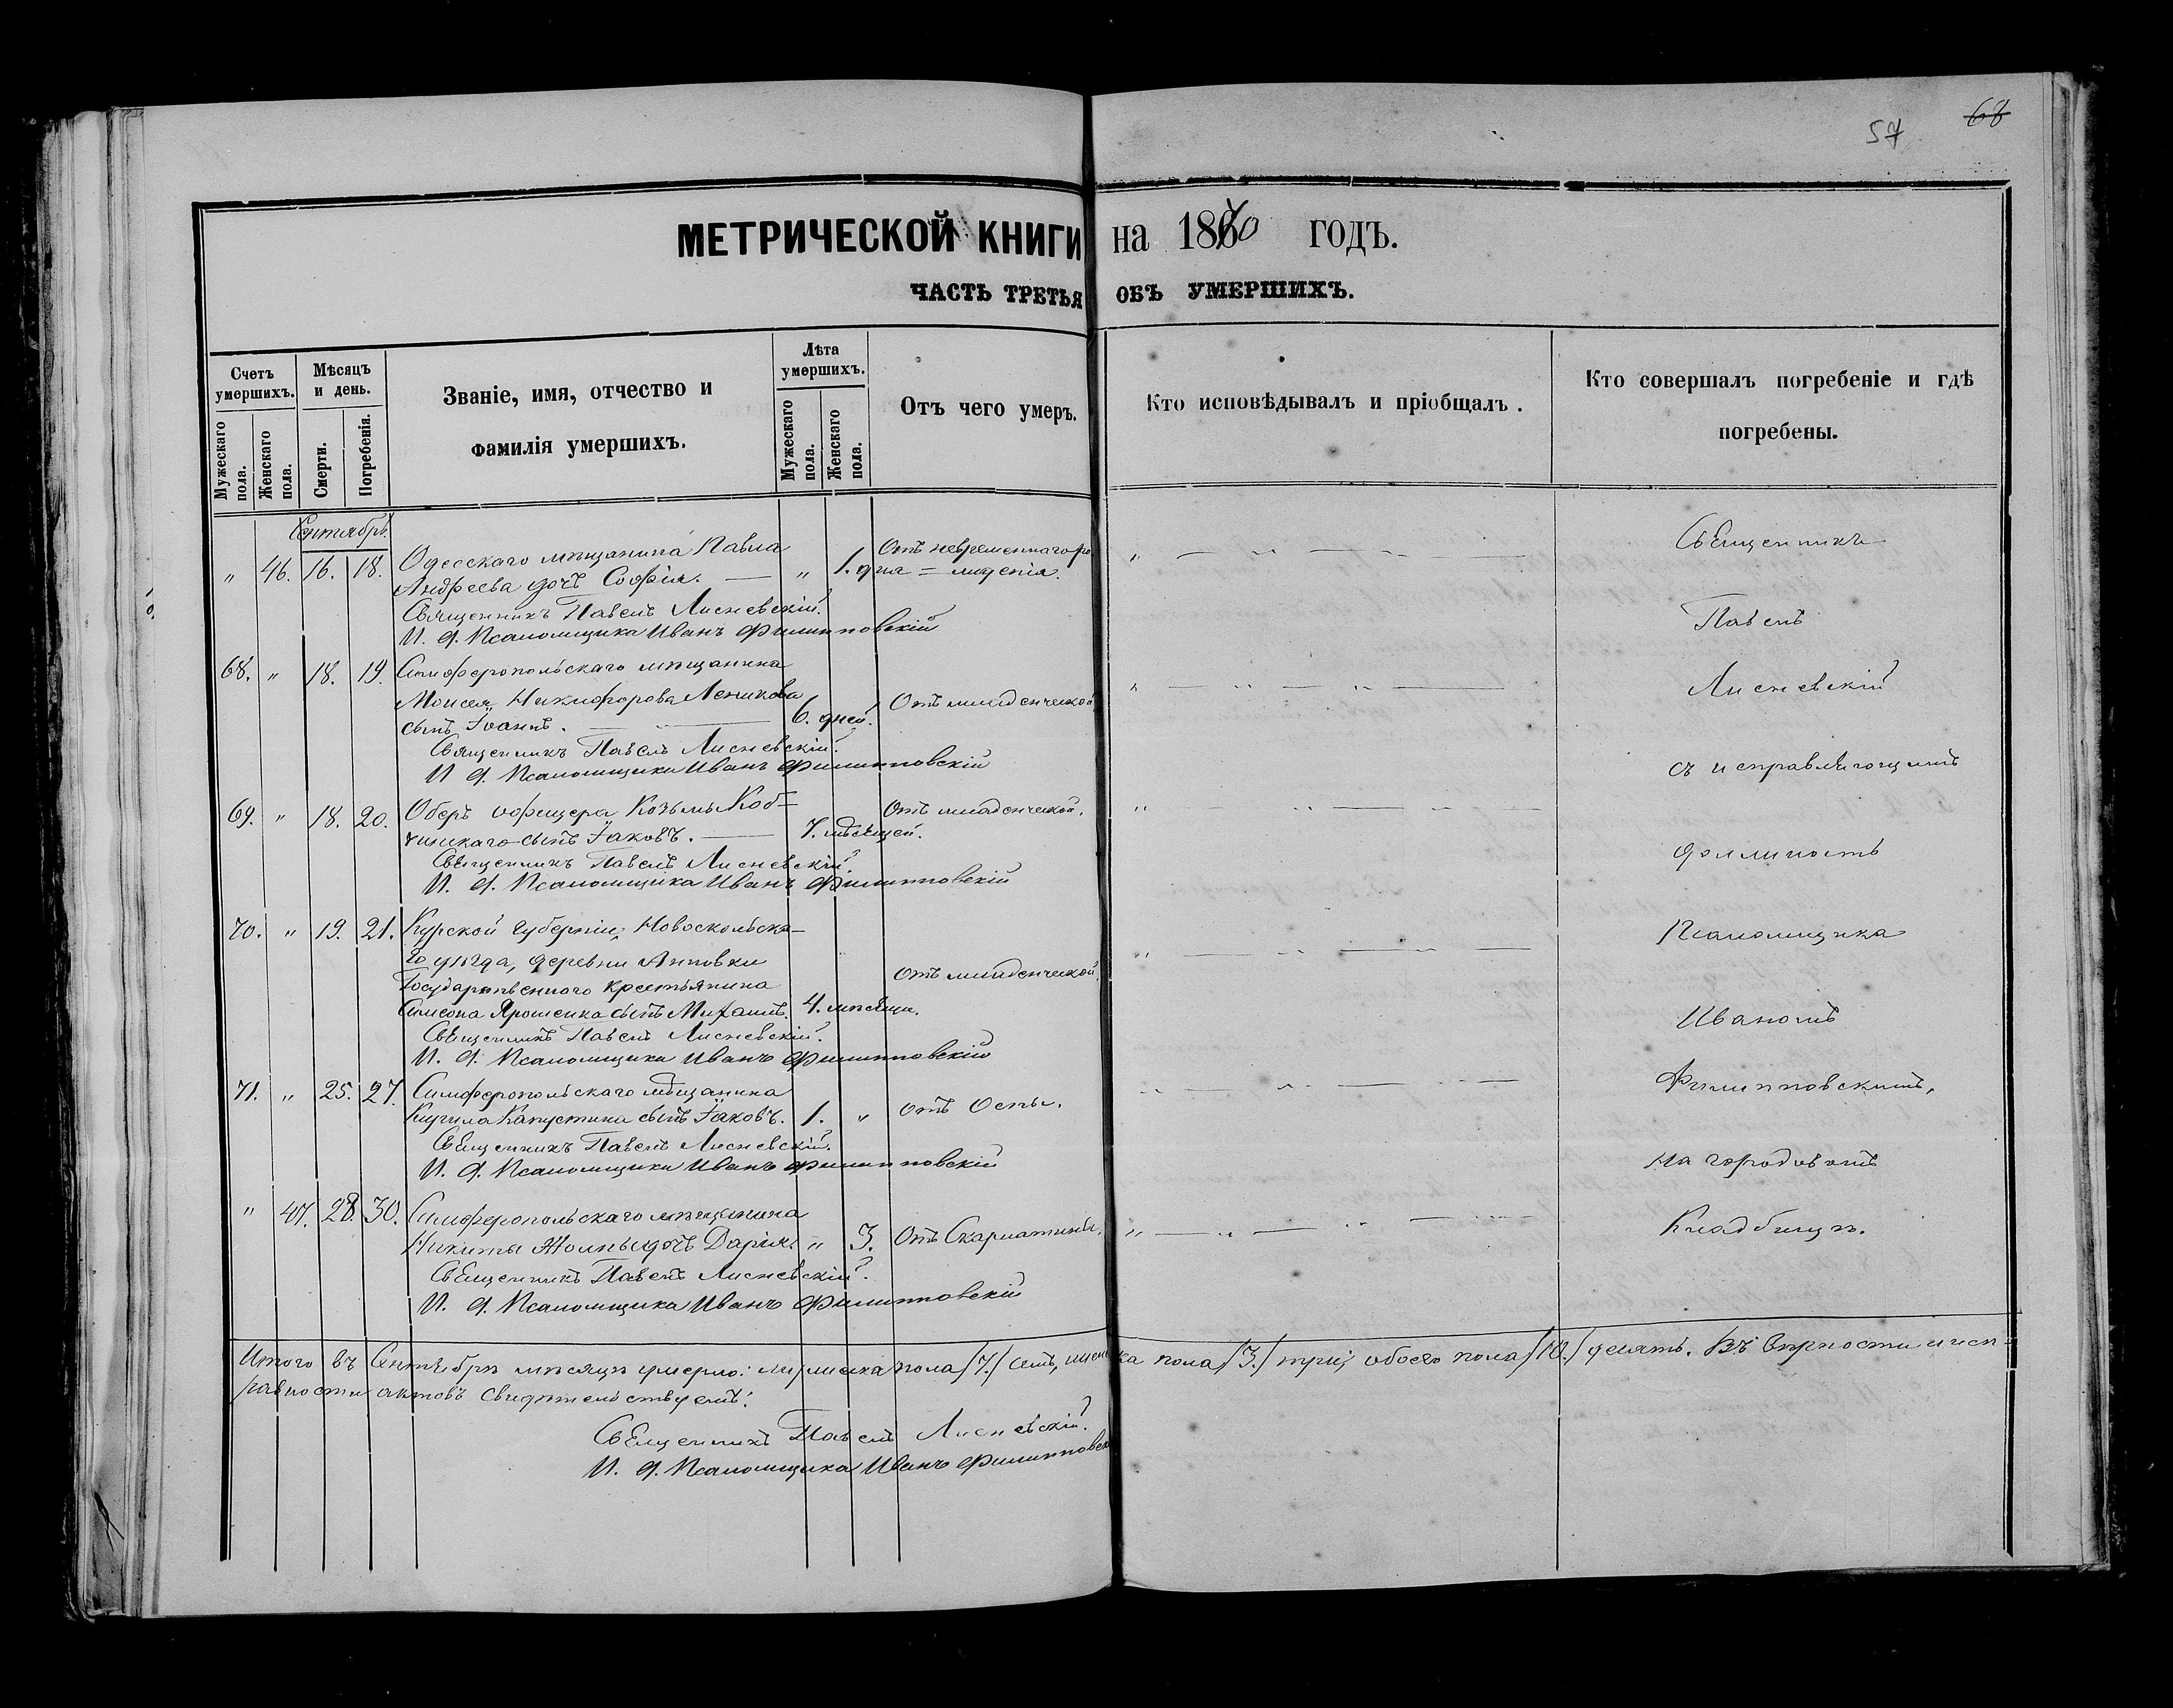 57 68
МЕТРИЧЕСКОЙ КНИГИ на 1870 ГОДЪ.
ЧАСТЬ ТРЕТЬЯ ОБЪ УМЕРШИХЪ.
Счетъ умершихъ.
Мужескаго пола.
Женскаго пола.
Мѣсяцъ и день.
Смерти.
Погребенія.
Званіе, имя, отчество и
фамилія умершихъ.
Лѣта умершихъ.
Мужескаго пола.
Женскаго пола.
Отъ чего умеръ.
Кто исповѣдывалъ и пріобщалъ.
Кто совершалъ погребеніе и гдѣ
погребены.
Сентябрь.
„ 46. 16. 18. Одесскаго мѣщанина Павла Отъ невременнаго ро-
Андреева дочь Софія. — „ 1. дня = жденія.
Священникъ Павелъ Лисневскій.
И. д. Псаломщика Иванъ Филипповскій
68. „ 18. 19. Симферопольскаго мѣщанина
Моисея Никифорова
сынъ Іоаннъ. — 6. дней. Отъ младенческой,
Священникъ Павелъ Лисневскій.
И. д. Псаломщика Иванъ Филипповскій
69. „ 18. 20. Оберъ офицера Козьмы Коб-
чинскаго сынъ Іаковъ. — 7. мѣсяцей. Отъ младенческой.
Священникъ Павелъ Лисневскій
И. д. Псаломщика Иванъ Филипповскій
70. „ 19. 21. Курской Губерніи, Новоскольска-
го уѣзда, деревни Анновки
Государственного крестьянина Отъ младенческой,
Симеона Ярошенка сынъ Михаилъ. 4. мѣсяца.
Священникъ Павелъ Лисневскій.
И. д. Псаломщика Иванъ Филипповскій
71. „ 25. 27. Симферопольскаго мѣщанина
Кирила Капустина сынъ Іаковъ. 1. „ отъ Оспы.
Священникъ Павелъ Лисневскій.
И. д. Псаломщика Иванъ Филипповскій
„ 47. 28. 30. Симферопольскаго мѣщанина
Никиты дочь Дарія. „ 3. Отъ Скарлатины,
Священникъ Павелъ Лисневскій.
И. д. Псаломщика Иванъ Филипповскій
Священникъ
Павелъ
Лисневскій
съ исправляющимъ
должность
Псаломщика
Иваномъ
Филипповскимъ,
на городовомъ
Кладбищѣ.
Итого въ Сентябрѣ мѣсяцѣ умерло: мужеска пола /7./ семь, женска пола /3./ три, обоего пола /10./ десять. Въ вѣрности и исп-
равности актовъ свидѣтельствуемъ:
Священникъ Павелъ Лисневскій.
И. д. Псаломщика Иванъ Филипповск